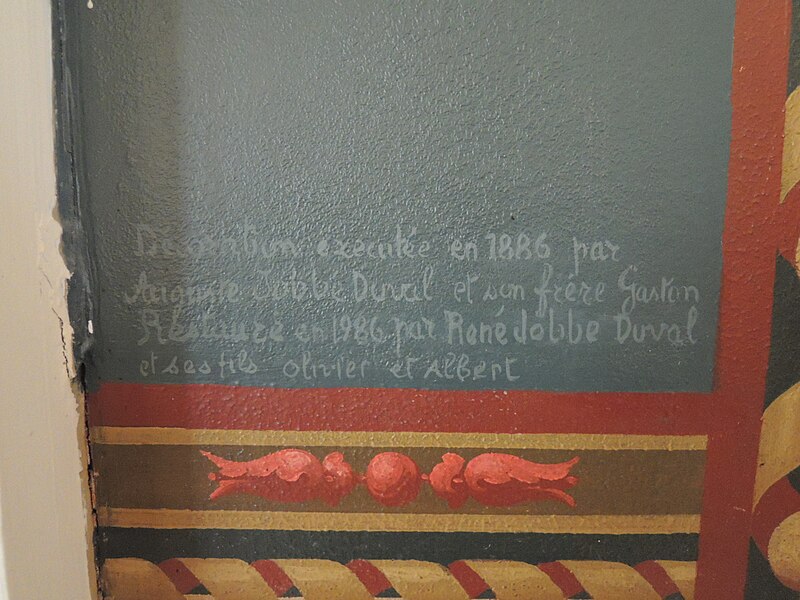 Décoration executée en 1886 par
Auguste Jobbe Duval et son frére Gaston
Restauré en 1986 par René Jobbe Duval
et ses fils Olivier et Albert